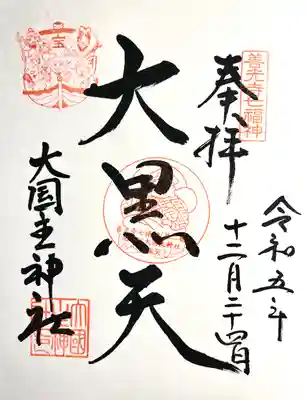 善光寺七福神
奉拝
令和五年
十二月二十四日
大黒天
宝
大国主神社